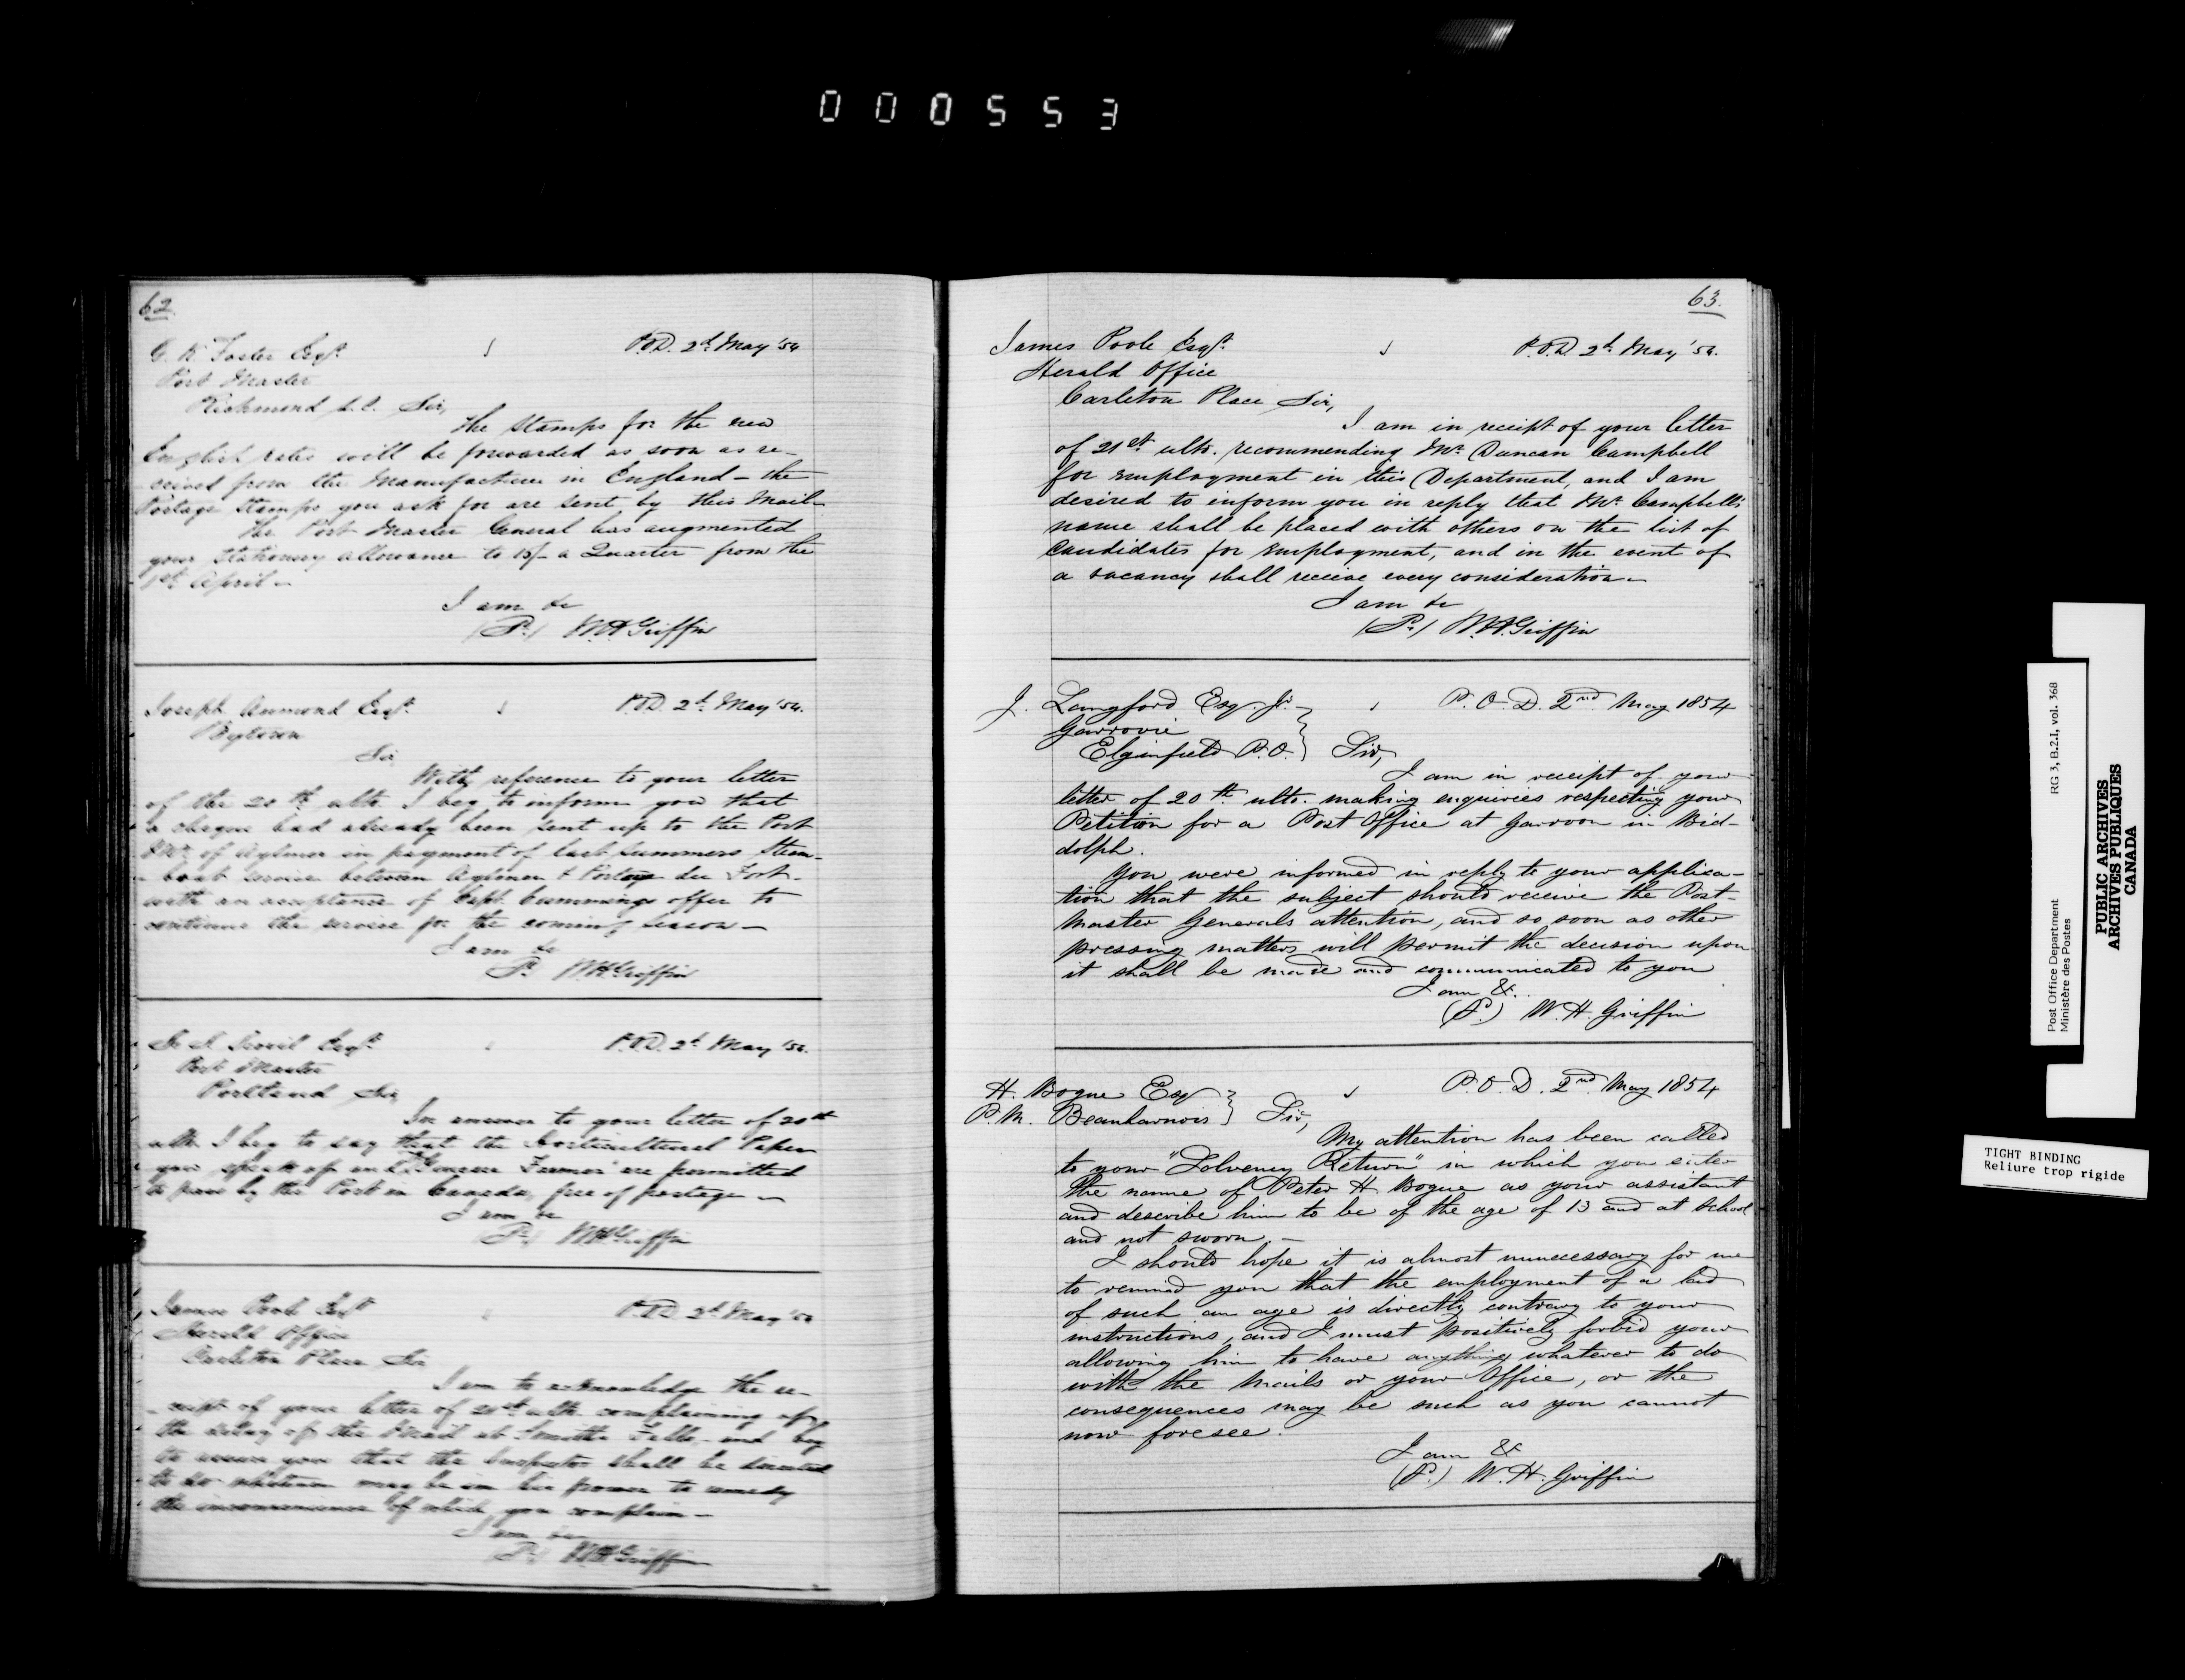 000553
62
G. K. Foster Esqr.
P.O.D. 2d. May '54
Post Master
Richmond C.E. Sir,
The Stamps for the new
English rates will be forwarded as soon as re-
ceived from the Manufacturer in England – the
Postage Stamps you ask for are sent by this Mail
The Post Master General has augmented
your Stationery allowance to 15/- a Quarter from the
1st April –
I am &c
(Sd.) W.H. Griffin
Joseph Aumond Esqr.
P.O.D. 2d. May '54.
Bytown
Sir
With reference to your letter
of the 20th ulto. I beg to inform you that
a cheque had already been sent up to the Post
Mr. of Aylmer in payment of last Summers Steam-
boat service between Aylmer & Portage du Fort –
with an acceptance of Capt. Cummings offer to
continue the service for the coming season –
I am &c
Sd. W.H. Griffin
Esqr.
P.O.D. 2d. May '54.
Post Master
Portland Sir
In answer to your letter of 20th
ulto. I beg to say that the Horticultural Paper
you speak of and Genesee Farmer are permitted
to pass by the Post in Canada, free of postage –
I am &c
(Sd.) W.H. Griffin
James Poole Esqr
P.O.D. 2d. May '54
Herald Office
Carleton Place Sir
I am to acknowledge the re-
ceipt of your letter of 21st ulto. complaining of
the delay of the Mail at Smiths Falls – and beg
to assure you that the Inspector shall be directed
to do whatever may be in his power to remedy
the inconvenience of which you complain –
I am &c
(Sd.) W.H. Griffin
63.
James Poole Esqr.
P.O.D. 2d. May '54.
Herald Office
Carleton Place Sir,
I am in receipt of your letter
of 21st ulto. recommending Mr. Duncan Campbell
for employment in this Department, and I am
desired to inform you in reply that Mr. Campbell's
name shall be placed with others on the list of
Candidates for employment, and in the event of
a vacancy shall receive every consideration –
I am &c
(Sd.) W.H. Griffin
J. Langford Esq. Jr.
P.O.D. 2nd May 1854
Garrovie
Elginfield P.O. } Sir,
I am in receipt of your
letter of 20th ulto. making enquiries respecting your
Petition for a Post Office at Garroon in Bid-
dolph.
You were informed in reply to your applica-
tion that the subject should receive the Post-
Master Generals attention, and so soon as other
pressing matters will permit the decision upon
it shall be made and communicated to you
I am &c.
(Sd.) W. H. Griffin
H. Bogue Esq
P.O.D. 2nd May 1854
P.M. Beauharnois } Sir,
My attention has been called
to your "Solvency Return" in which you enter
the name of Peter H. Bogue as your assistant
and describe him to be of the age of 13 and at school
and not sworn. –
I should hope it is almost unnecessary for me
to remind you that the employment of a lad
of such an age is directly contrary to your
instructions, and I must positively forbid your
allowing him to have anything whatever to do
with the Mails or your Office, or the
consequences may be such as you cannot
now foresee.
I am &c
(Sd.) W. H. Griffin
Post Office Department RG 3, B.2.I, vol. 368
Ministère des Postes
PUBLIC ARCHIVES
ARCHIVES PUBLIQUES
CANADA
TIGHT BINDING
Reliure trop rigide